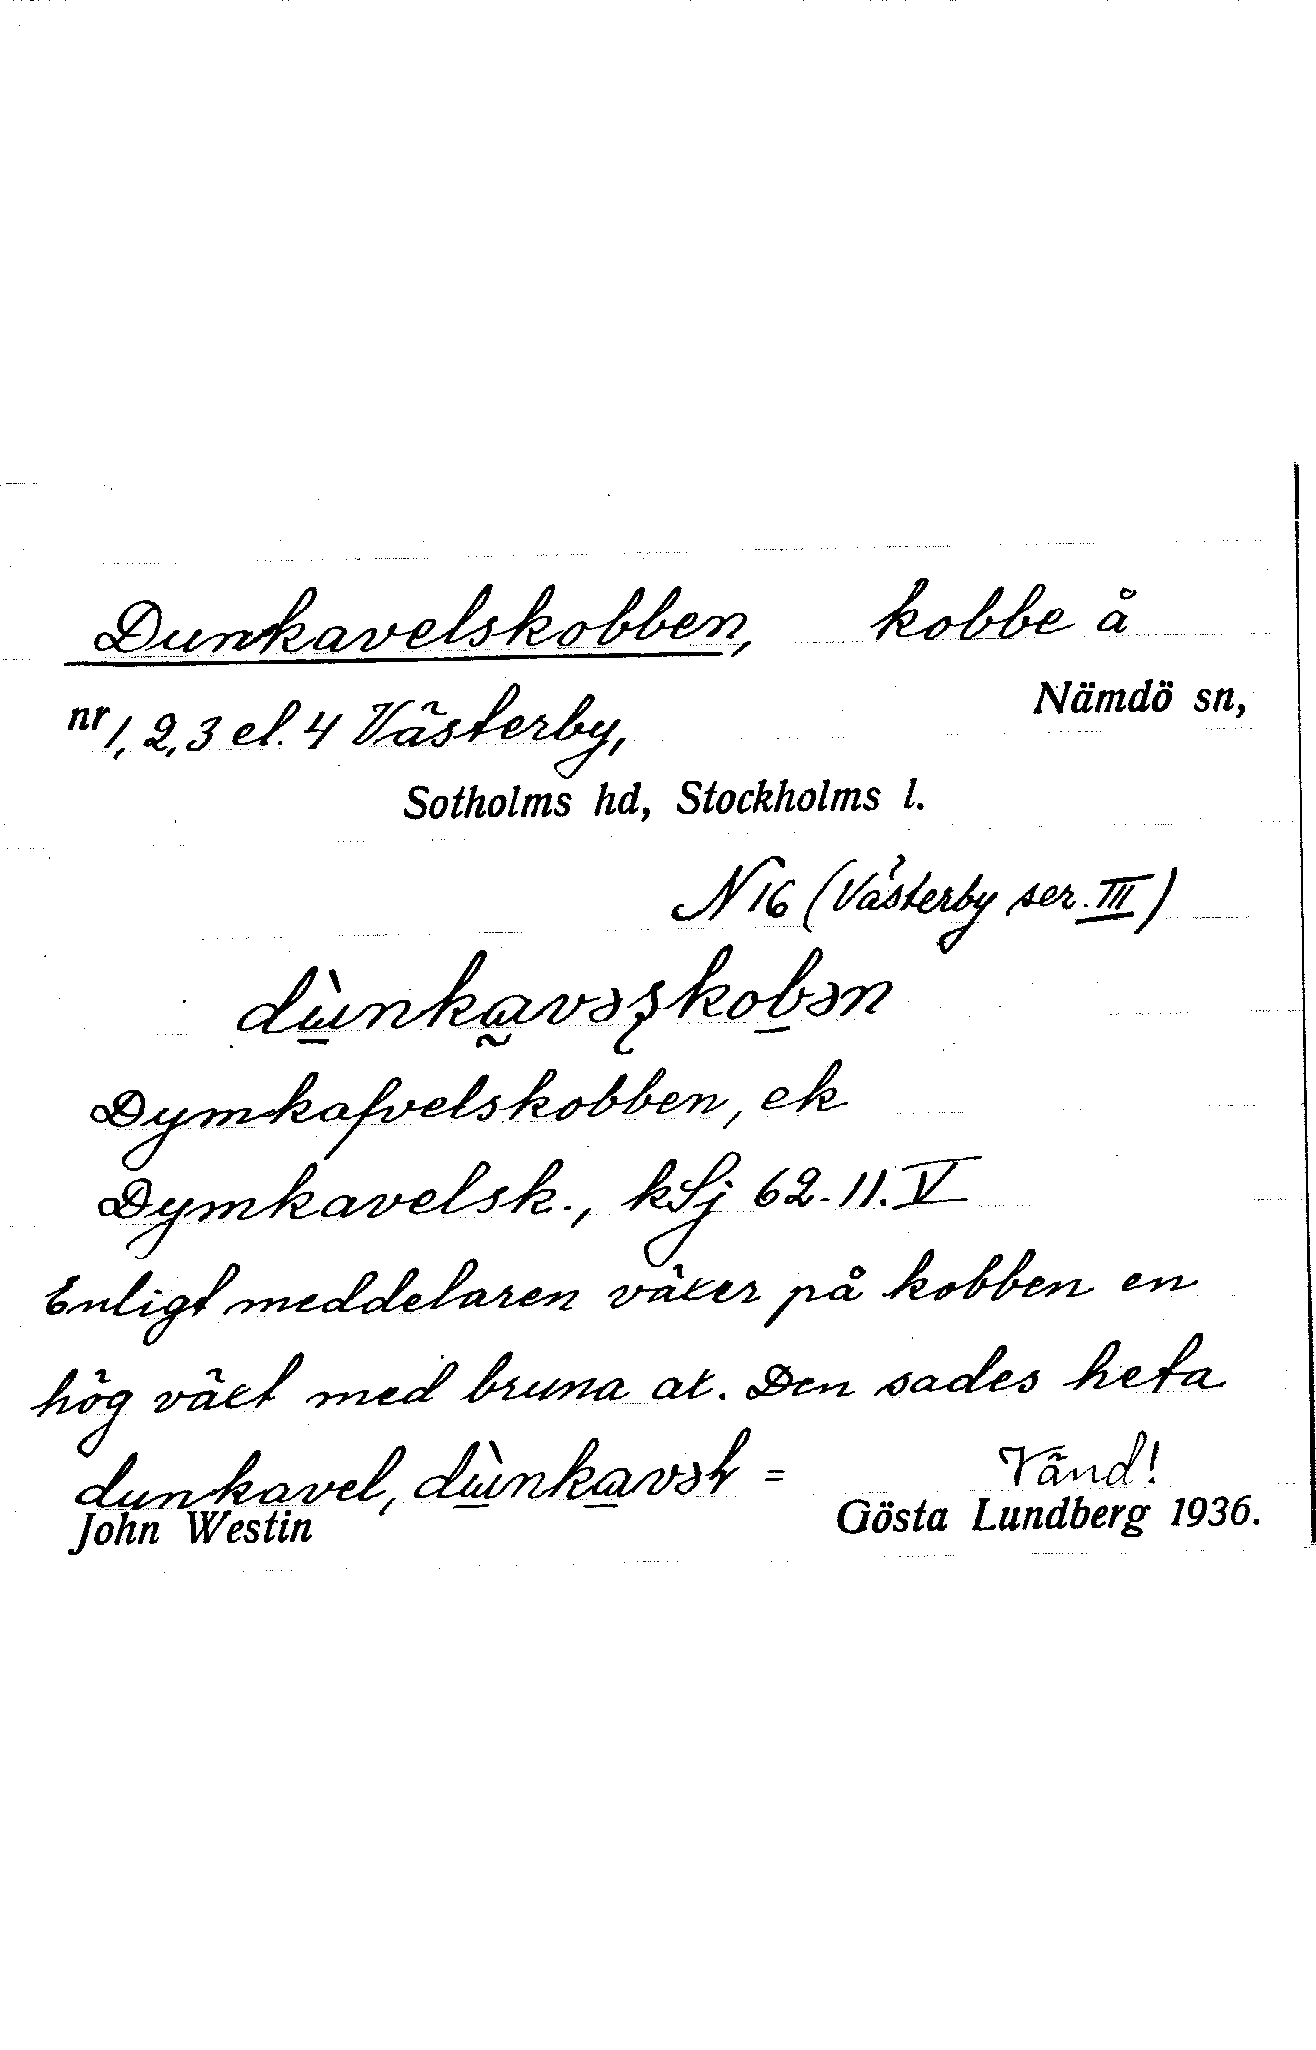 Dunkavelskobben, kobbe å
nr 1, 2, 3 el. 4 Västerby, Nämdö sn,
Sotholms hd, Stockholms l.
N 16 (Västerby ser. III)
Dymkafvelskobben, ek
Dymkavelsk., kSj 62-11.V
Enligt meddelaren växer på kobben en
hög växt med bruna ax. Den sades heta
dunkavel, = Vänd!
John Westin Gösta Lundberg 1936.